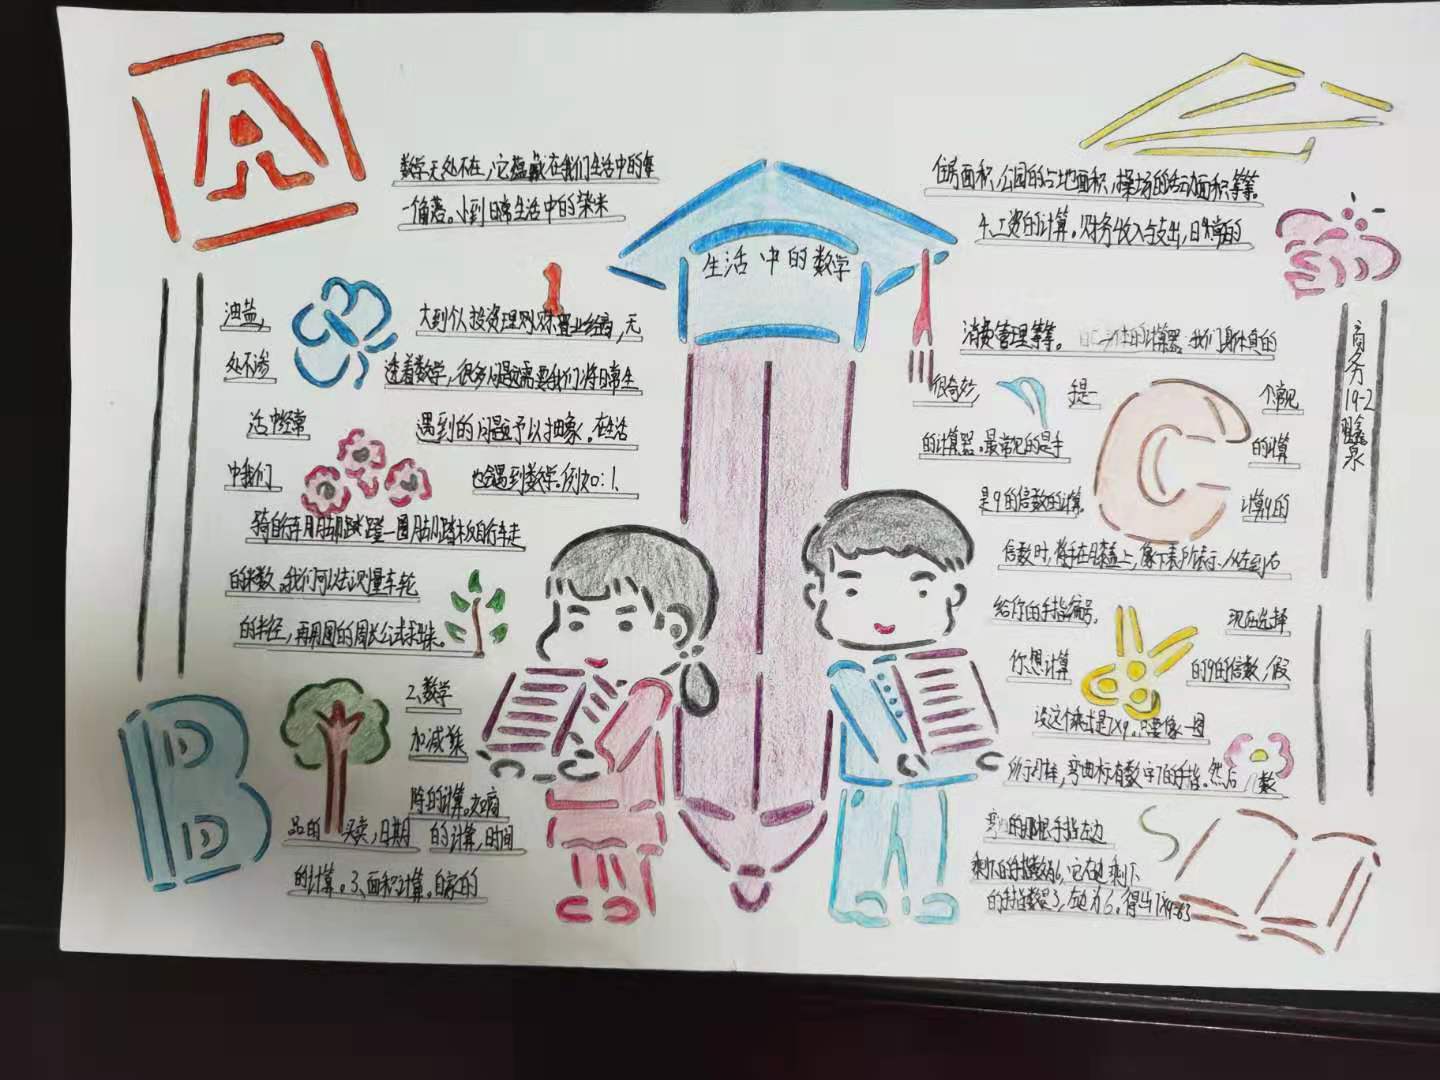 A
生活中的数学
数学无处不在,它蕴藏在我们生活中的每
一角落。小到日常生活中的柴米
油盐,
大到个人投资理财,无
处不渗
透着数学,很多问题需要我们将日常生
活中经常
遇到的问题予以抽象。在生活
中我们
也会遇到数学。例如:1、
骑自行车用脚踏蹬一圈脚踏板自行车走
的米数。我们可以去测量车轮
的半径,再用圆的周长公式
2、数学
加减乘
除的计算。如商
品的 买卖,日期 的计算,时间
的计算。3、面积计算。自家的
B
住房面积,公园的占地面积,操场的活动面积等等。
4、工资的计算。财务收入与支出,日常的
消费管理等等。 的计算器:我们身体真的
很奇妙,
手是一
个常见
的计算器。最常见的是手
的计算
是9的倍数的计算。
计算9的
倍数时,将手在膝盖上,像下表所示,从左到右
给你的手指编号。
现在选择
你想计算
的9的倍数,假
设这个乘式是7×9。只要像一图
所示那样,弯曲标有数字7的手指。然后 数
弯曲的那根手指左边
剩下的手指数为6,它右边剩下
的手指数是3,左边为6。得出7×9=63
C
商务
19-2